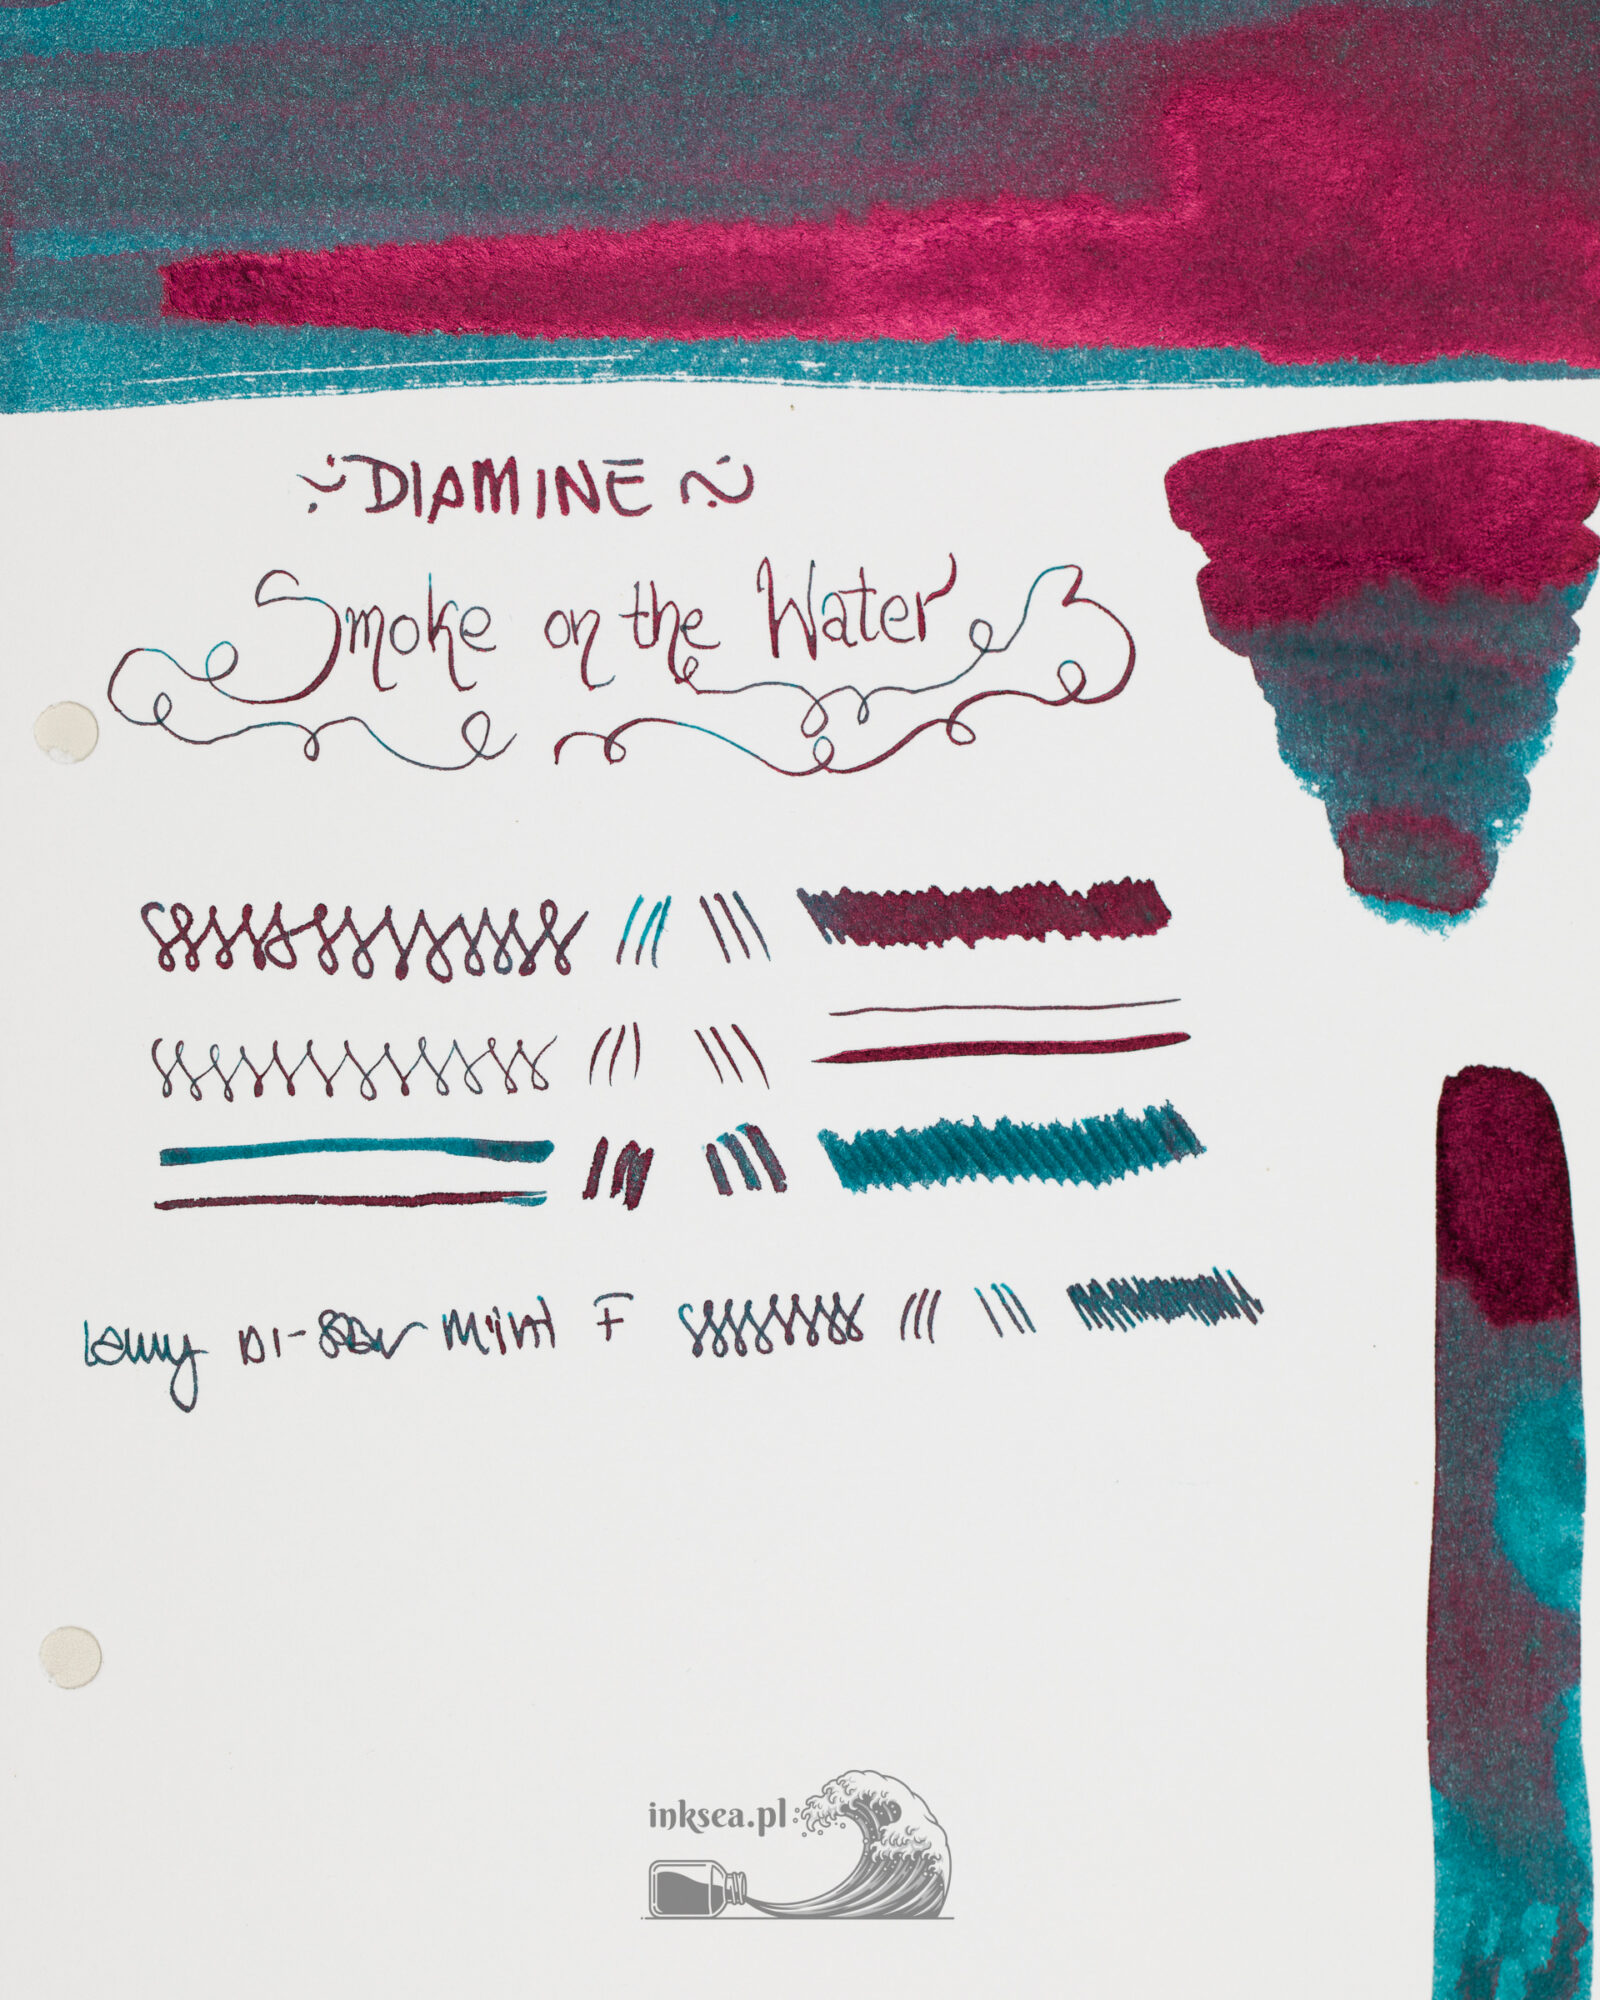 ~ DIAMINE ~
Smoke on the Water
Lamy Al-Star M F
inksea.pl